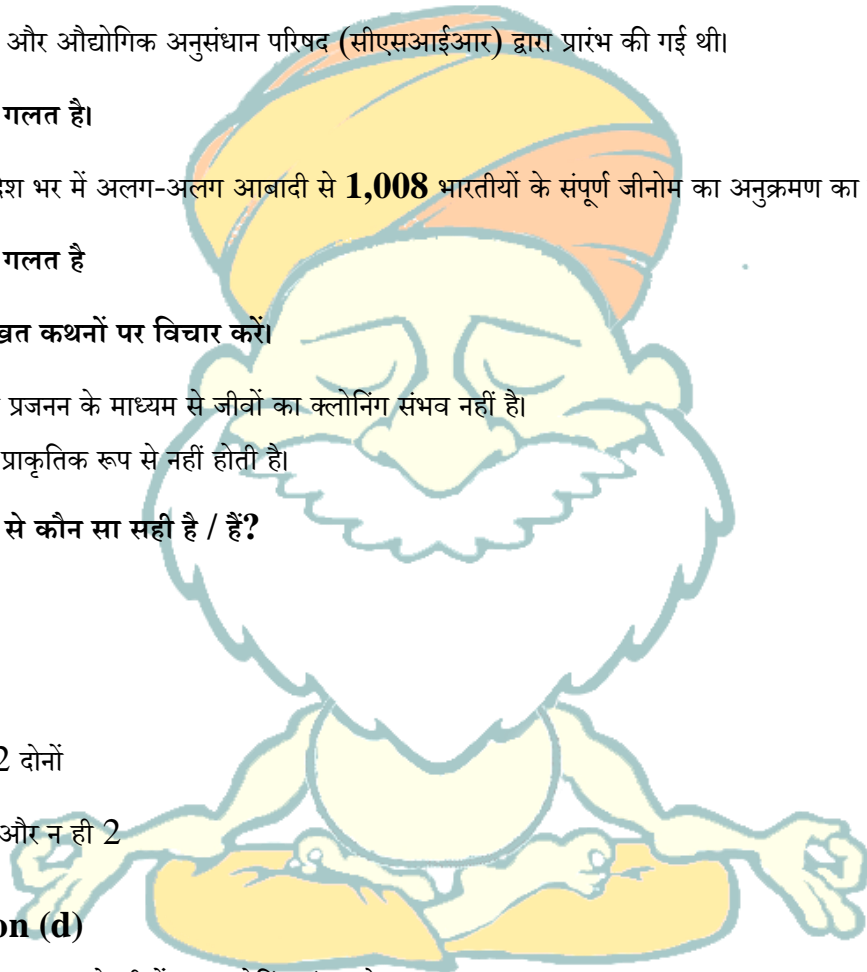 और औद्योगिक अनुसंधान परिषद (सीएसआईआर) द्वारा प्रारंभ की गई थी।
गलत है।
देश भर में अलग-अलग आबादी से 1,008 भारतीयों के संपूर्ण जीनोम का अनुक्रमण का
गलत है
कथनों पर विचार करें।
प्रजनन के माध्यम से जीवों का क्लोनिंग संभव नहीं है।
प्राकृतिक रूप से नहीं होती है।
से कौन सा सही है / हैं?
2 दोनों
और न ही 2
on (d)